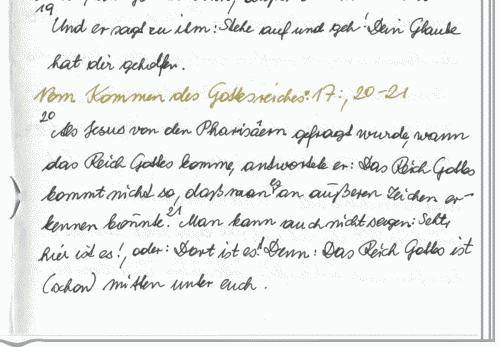 19
Und er sagt zu ihm: Stehe auf und geh! Dein Glaube
hat dir geholfen.
Vom Kommen des Gottesreiches: 17:, 20-21
20 Als Jesus von den Pharisäern gefragt wurde, wann
das Reich Gottes komme, antwortete er: Das Reich Gottes
kommt nicht so, daß man es an äußeren Zeichen er-
kennen könnte. 21 Man kann auch nicht sagen: Seht,
hier ist es!, oder: Dort ist es! Denn: Das Reich Gottes ist
(schon) mitten unter euch.